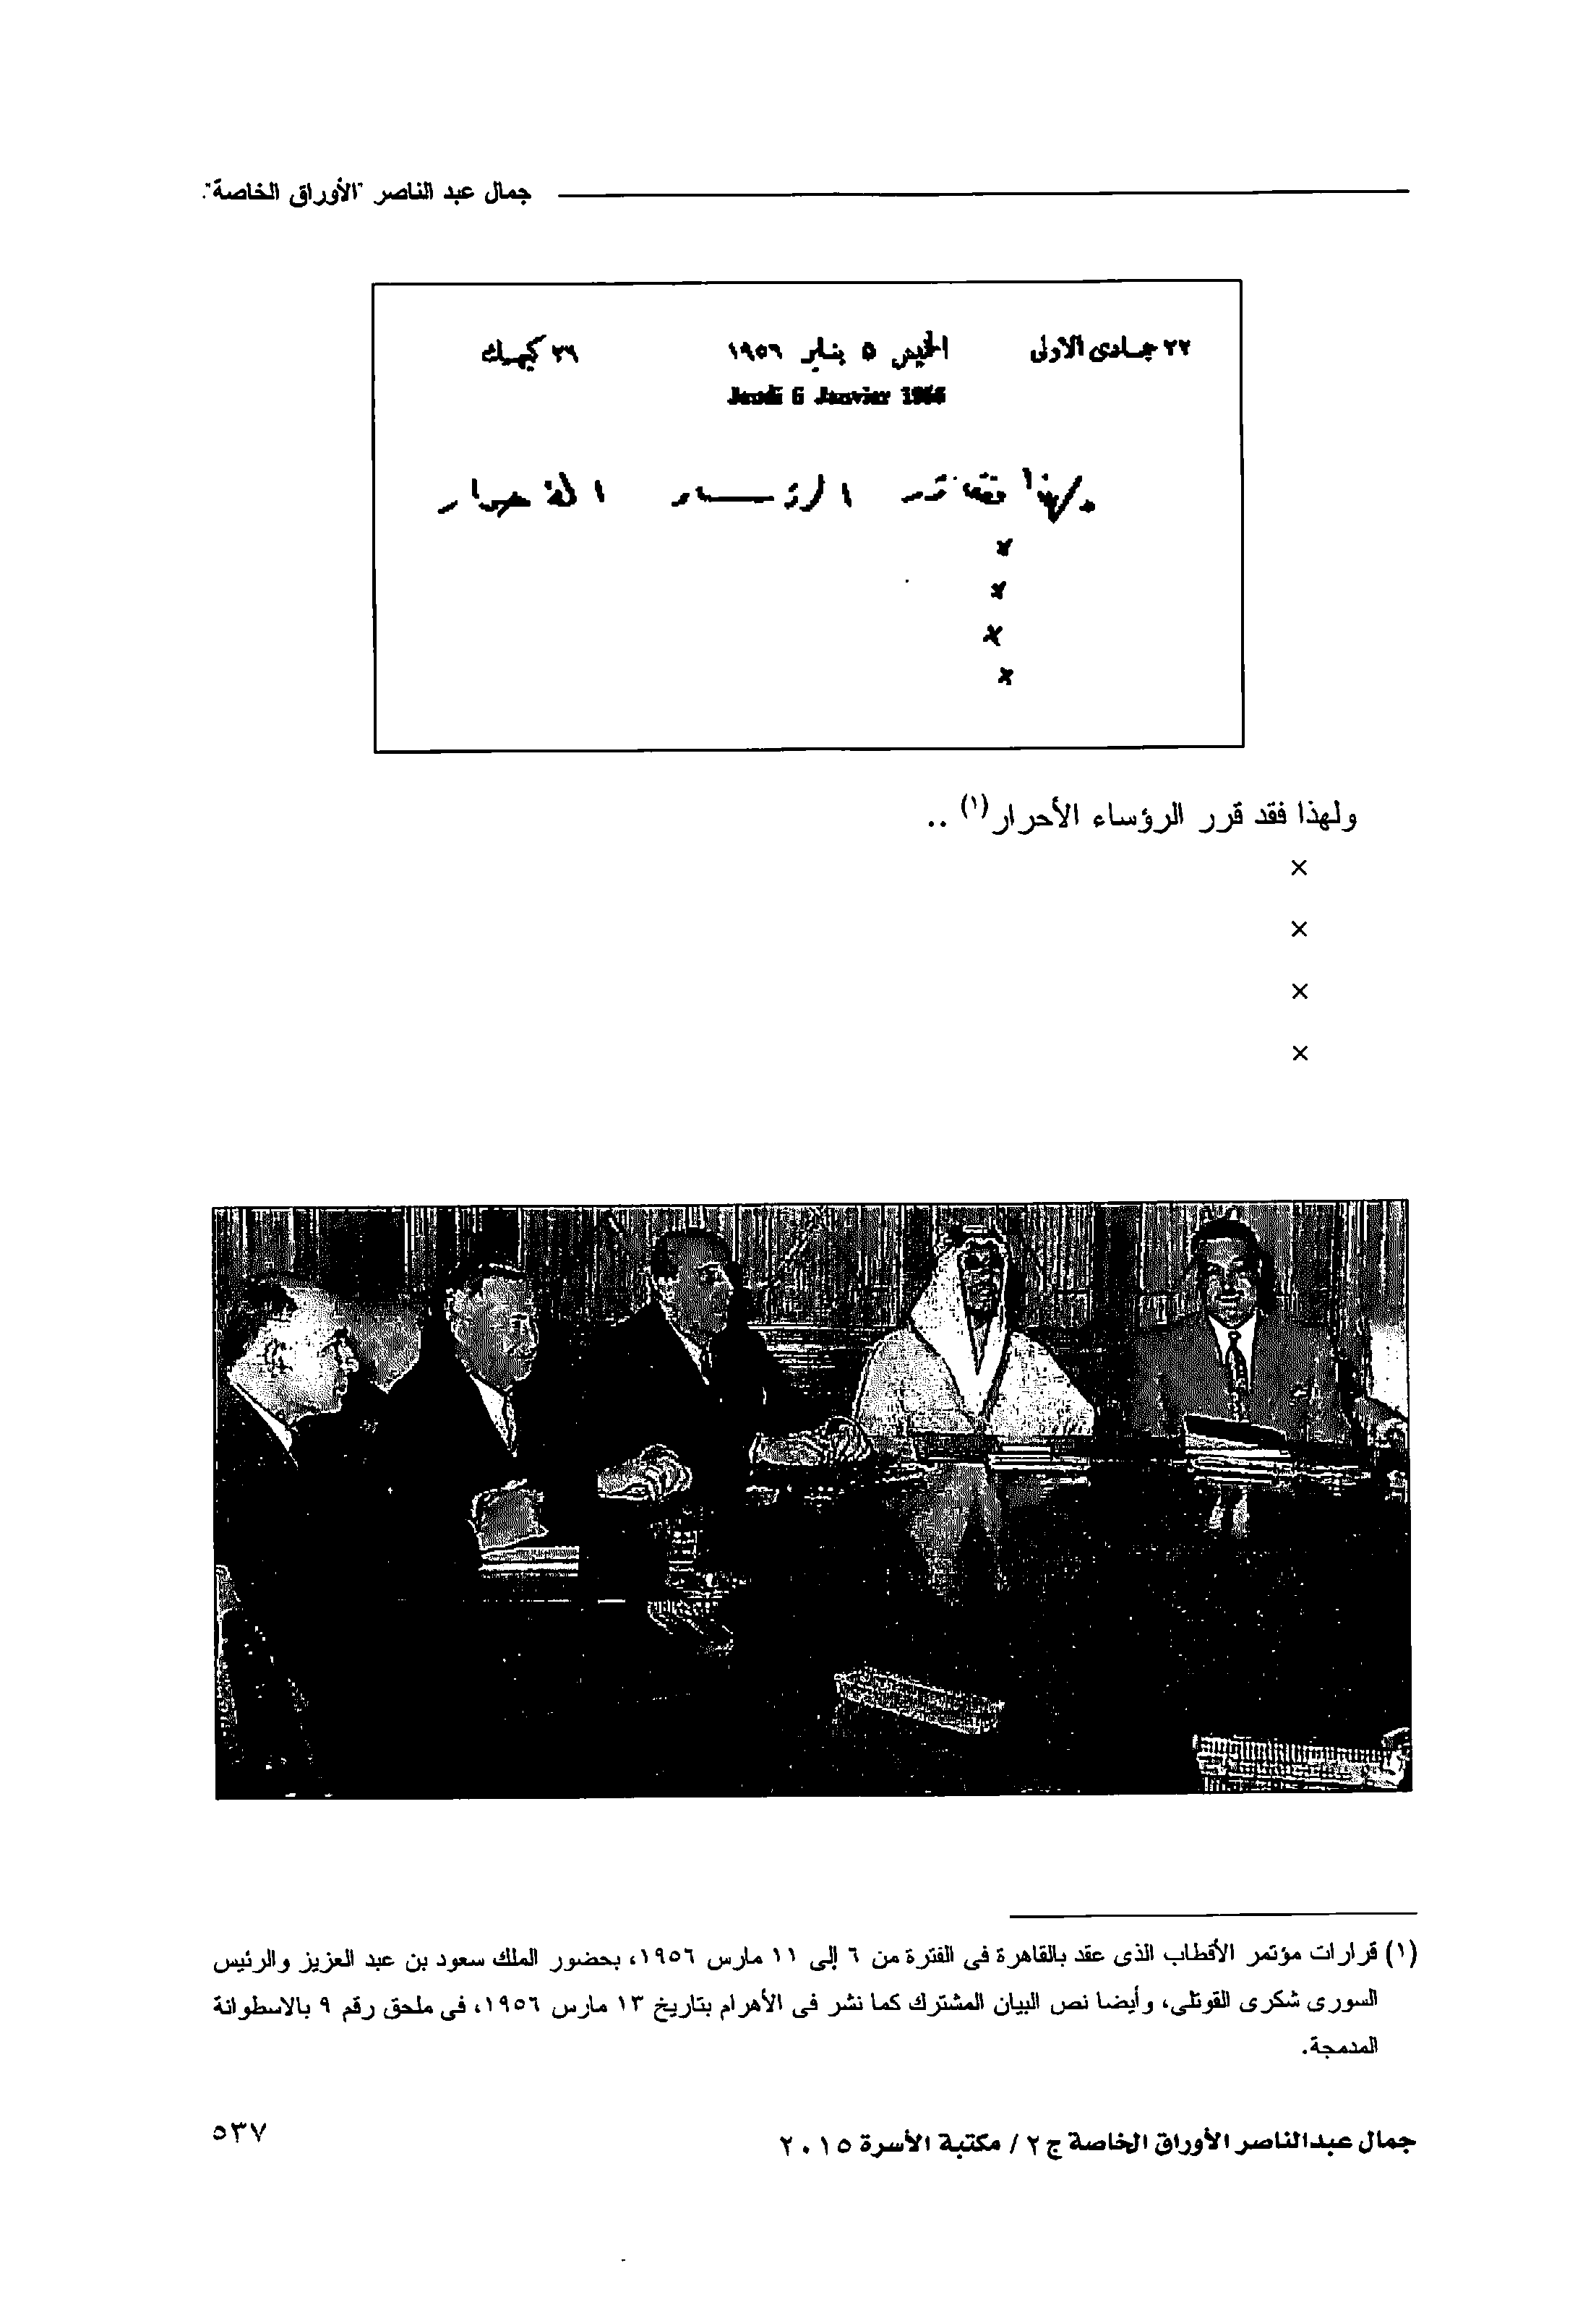 جمال عبد الناصر "الأوراق الخاصة".
٢٢ جمادى الأولى الخميس ٥ يناير ١٩٥٦ ٢٦ كيهك
Jeudi 5 Janvier 1956
ولهذا فقد قرر الرؤساء الأحرار
×
×
×
×
ولهذا فقد قرر الرؤساء الأحرار(١) ..
×
×
×
×
(١) قرارات مؤتمر الأقطاب الذى عقد بالقاهرة فى الفترة من ٦ إلى ١١ مارس ١٩٥٦، بحضور الملك سعود بن عبد العزيز والرئيس
السورى شكرى القوتلى، وأيضا نص البيان المشترك كما نشر فى الأهرام بتاريخ ١٣ مارس ١٩٥٦، فى ملحق رقم ٩ بالاسطوانة
المدمجة.
جمال عبدالناصر الأوراق الخاصة ج ٢ / مكتبة الأسرة ٢٠١٥
٥٣٧